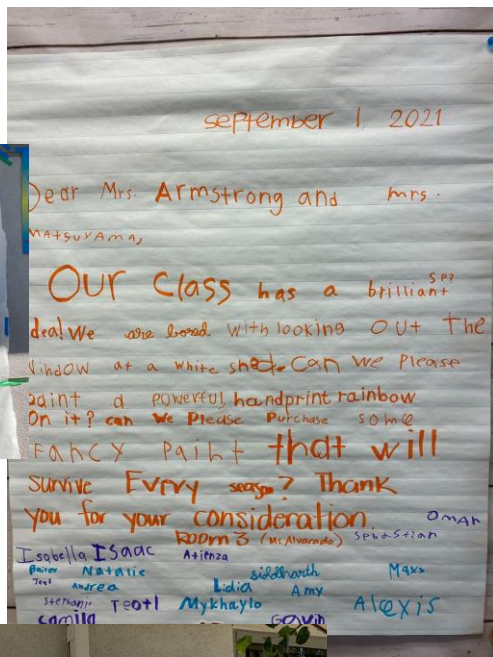 September 1, 2021
Dear Mrs. Armstrong and mrs.
MAtsuyAmA,
Our Class has a brilliant SP?
idea! We are bored with looking out the
Window at a white shed. Can we Please
paint a powerful handprint rainbow
On it? can We Please Purchase some
FAncy Paint that will
survive Every season? Thank
you for your consideration
ROOM 3 (Mr. Alvarado) Sebastian OMAR
Isabella ISaac Atienza
Natalie siddharth Maxx
Joel Andrea Lidia Amy
Stephanie Teotl Mykhaylo Alexis
camila Gavin